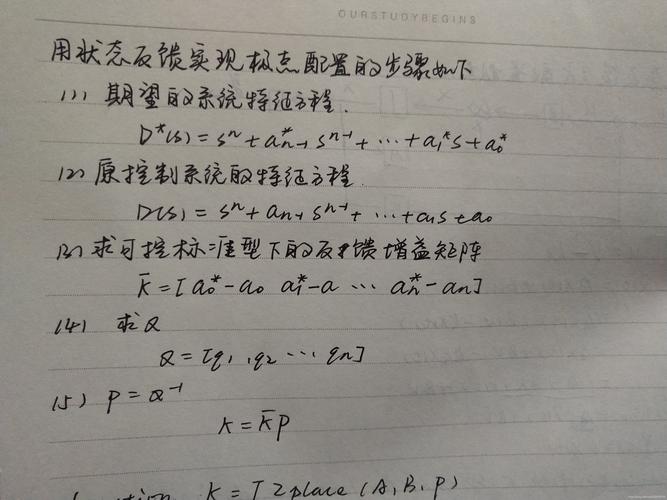 OURSTUDYBEGINS
用状态反馈实现极点配置的步骤如下
(1) 期望的系统特征方程.
D*(s) = sⁿ + a*ₙ₋₁ sⁿ⁻¹ + ⋯ + a₁* s + a₀*
(2) 原控制系统的特征方程.
D(s) = sⁿ + aₙ₋₁ sⁿ⁻¹ + ⋯ + a₁s + a₀
(3) 求可控标准型下的反馈增益矩阵
K̄ = [a₀* - a₀ a₁* - a ⋯ aₙ* - aₙ]
(4) 求Q
Q = [q₁, q₂ ⋯ qₙ]
(5) P = Q⁻¹
K = K̄P
K = TZplace (A, B, P)